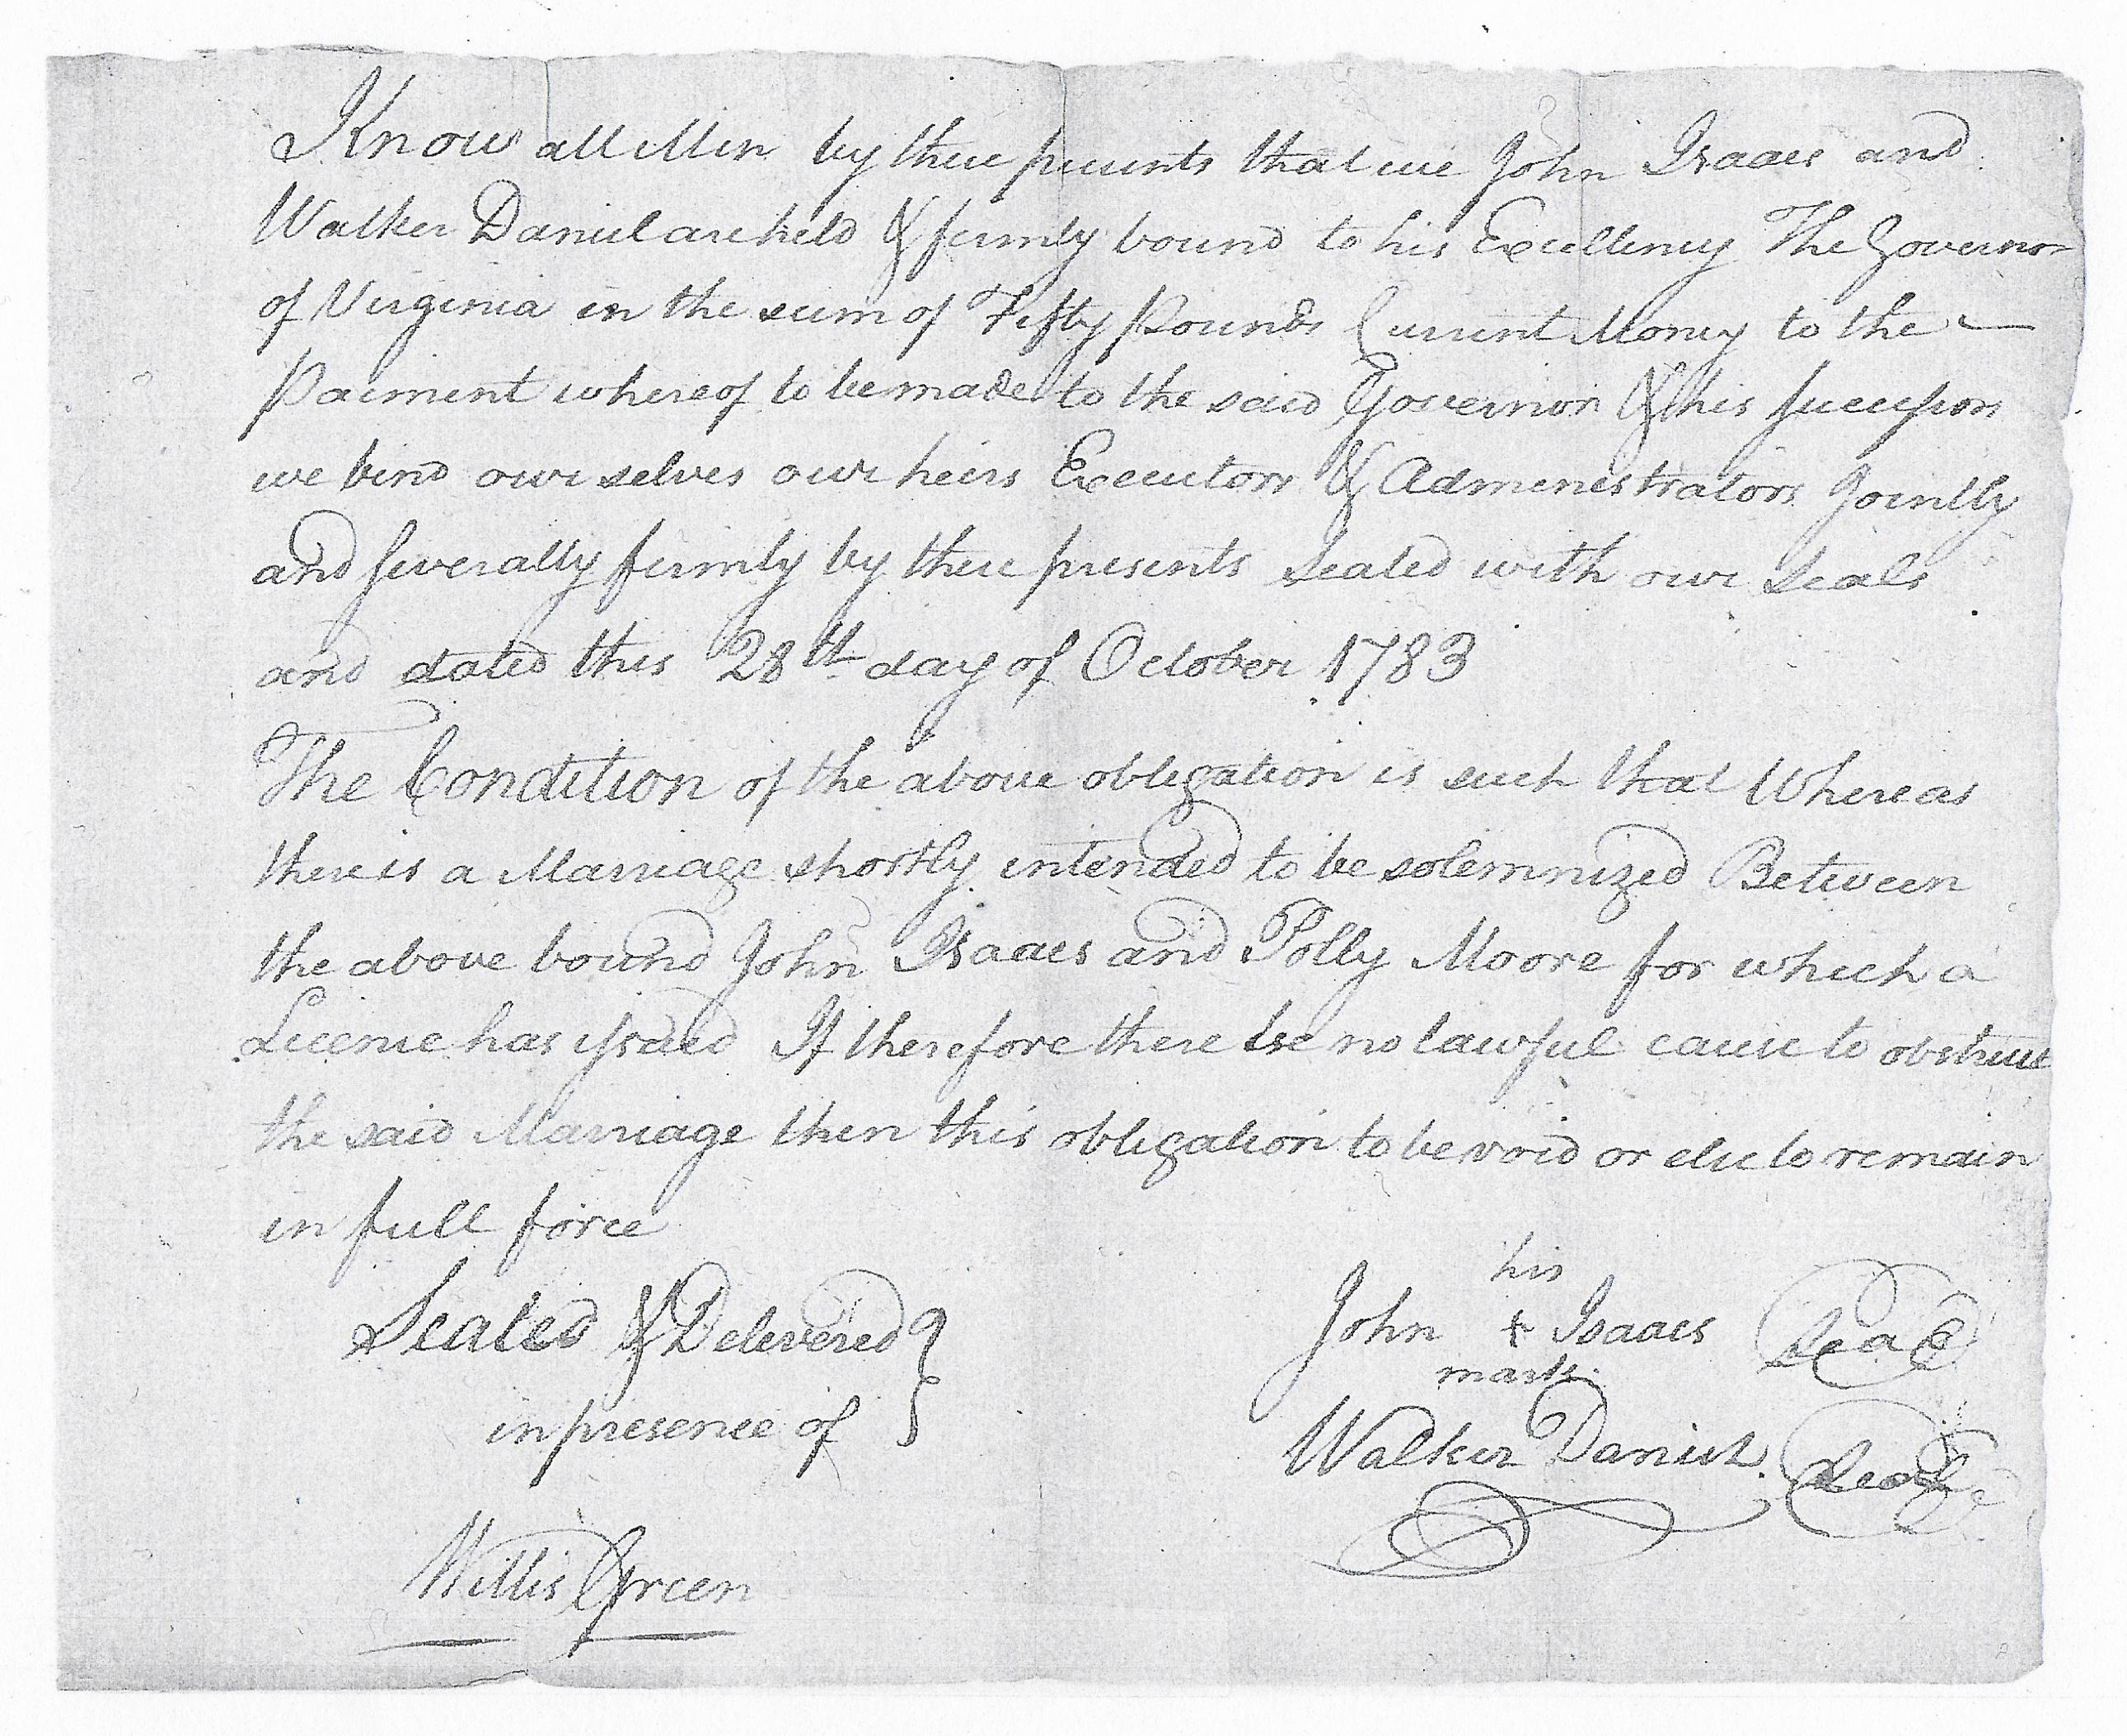 Know all Men by these presents that we John Isaacs and
Walker Daniel are held & firmly bound to his Excellency The Governor
of Virginia in the sum of Fifty Pounds Current Money to the
Paiment whereof to be made to the said Governor & his Successors
we bind ourselves our heirs Executors & Administrators Jointly
and Severally firmly by these presents Sealed with our Seals
and dated this 28th day of October 1783
The Condition of the above obligation is such that Whereas
there is a Marriage shortly intended to be solemnized Between
the above bound John Isaacs and Polly Moore for which a
License has issued If therefore there be no lawful cause to obstruct
the said Marriage then this obligation to be void or else to remain
in full force
his
Sealed & Delivered } John + Isaacs Seal
mark
in presence of Walker Daniel Seal
Willis Green